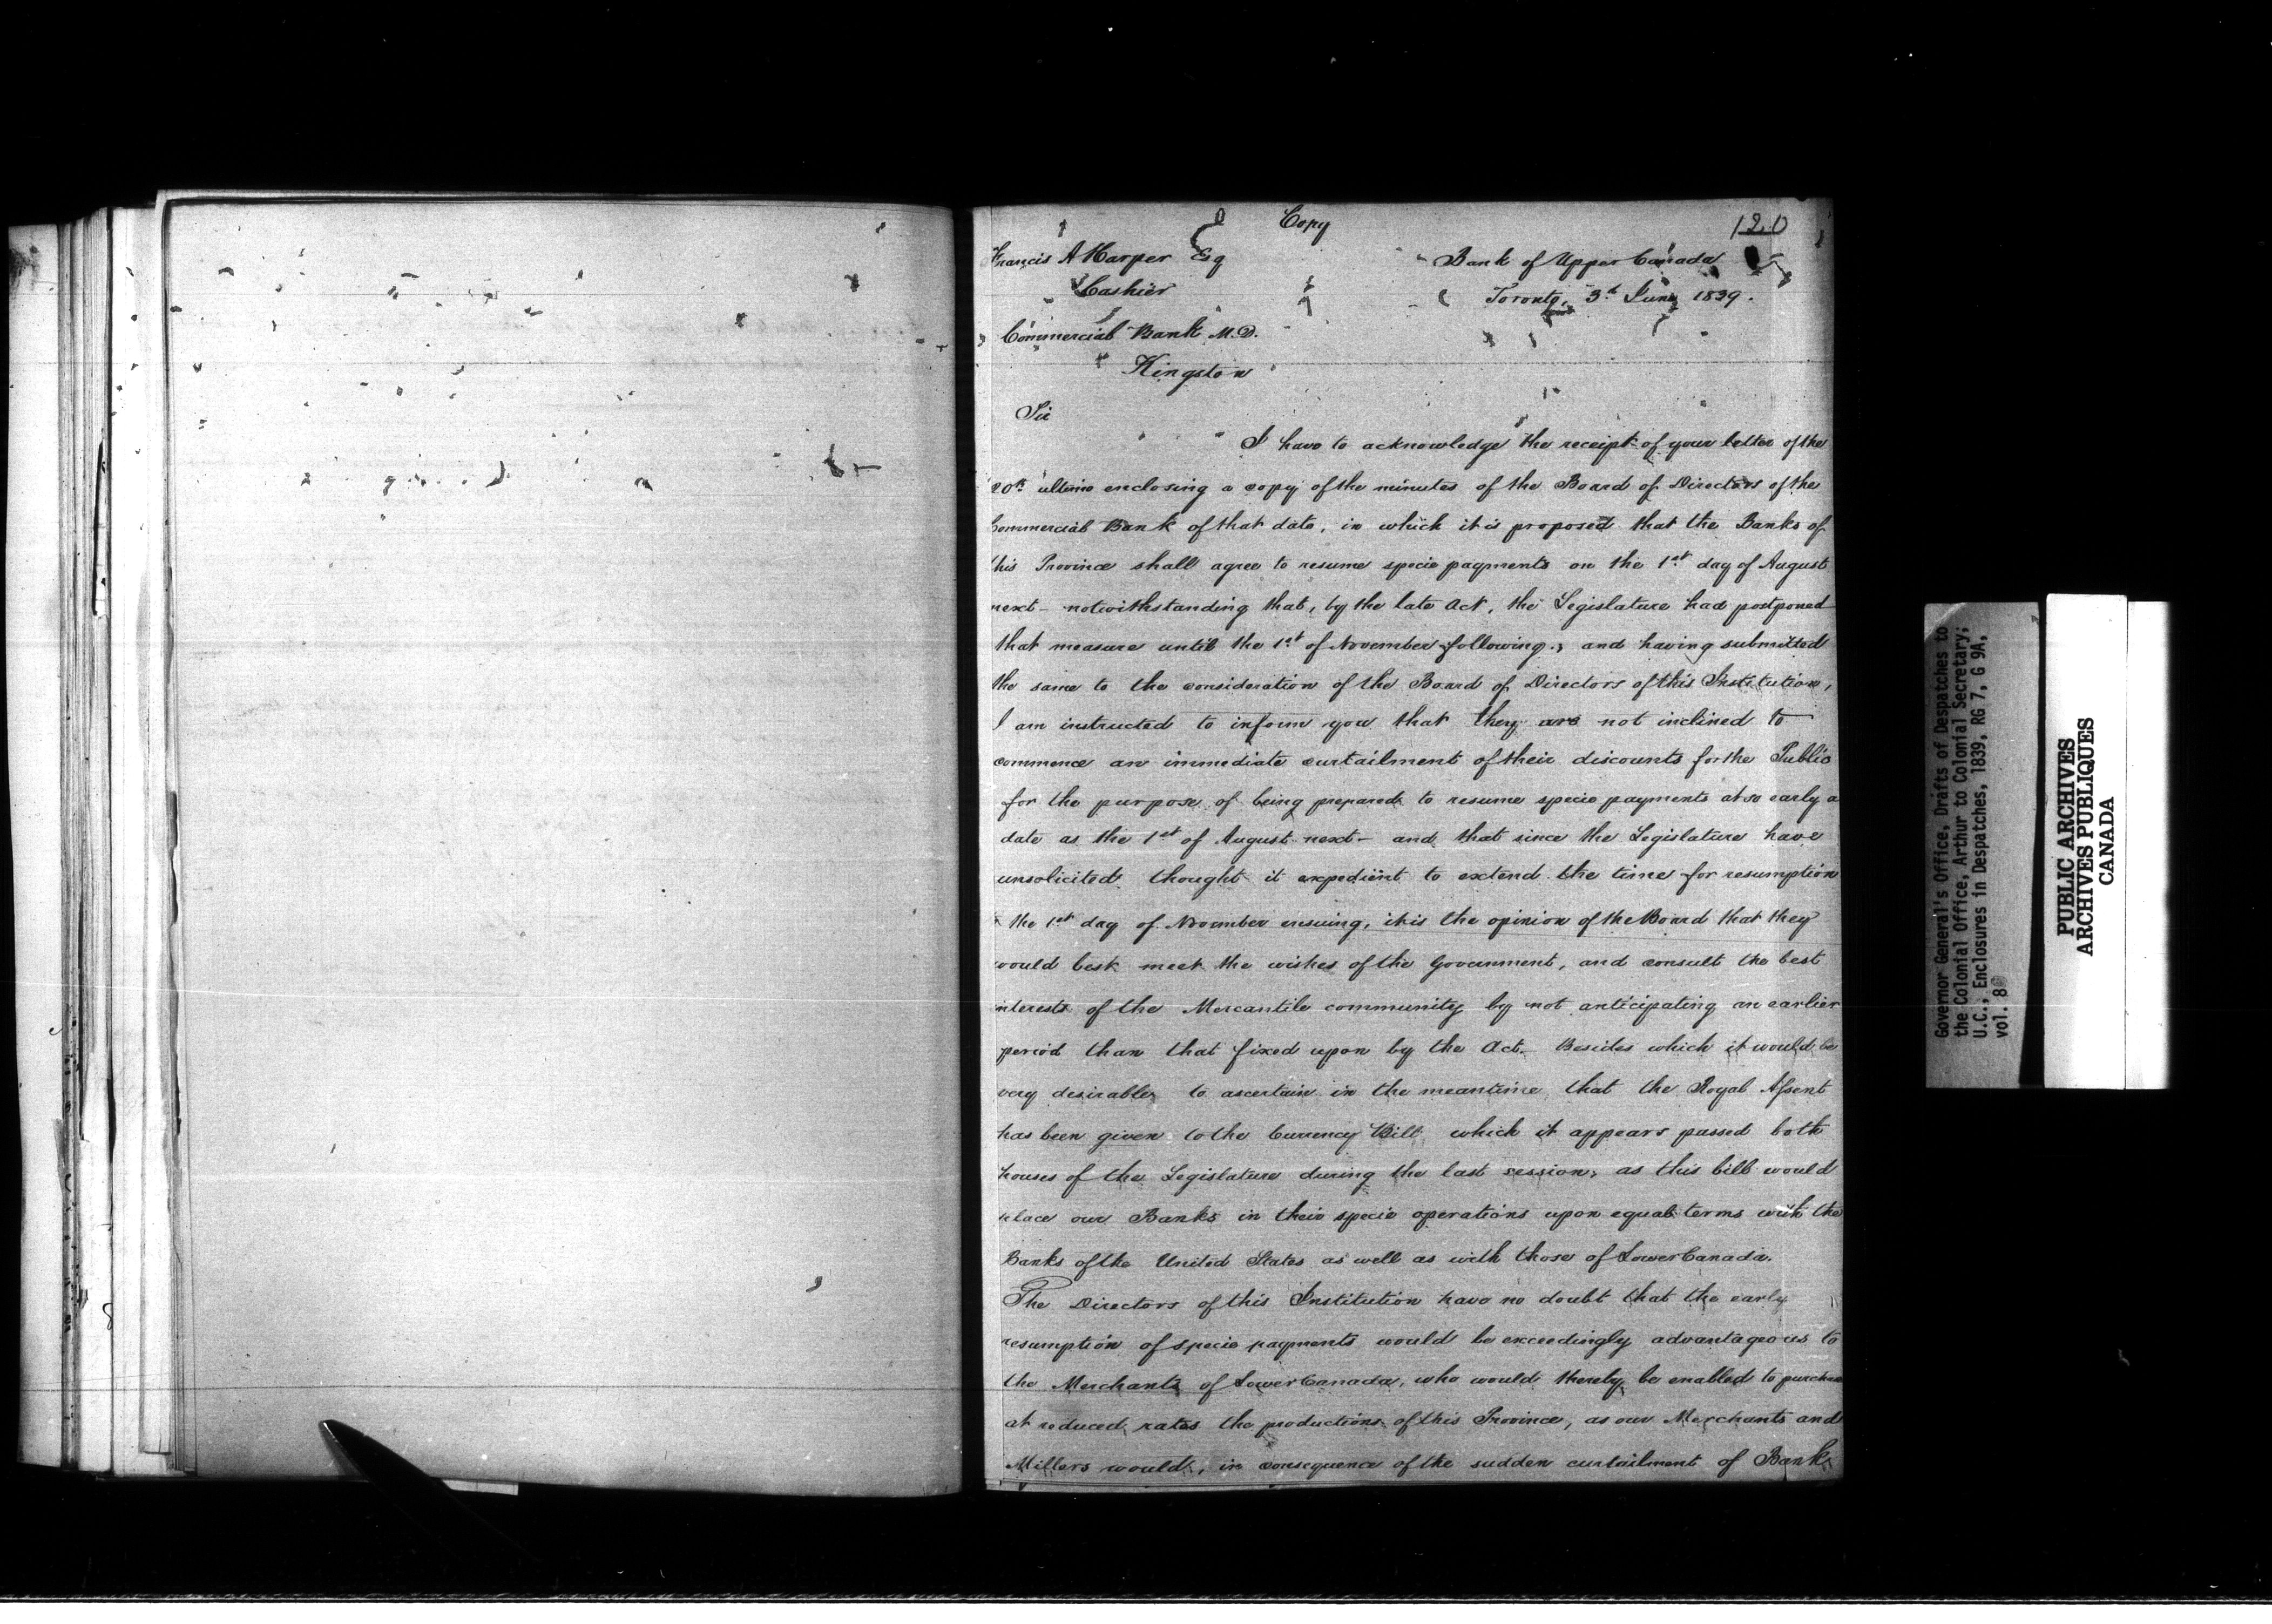 Copy
120
Francis A Harper Esq
Bank of Upper Canada
Cashier
Toronto, 3d June 1839.
Commercial Bank M.D.
Kingston
Sir
I have to acknowledge the receipt of your letter of the
20th ultimo enclosing a copy of the minutes of the Board of Directors of the
Commercial Bank of that date, in which it is proposed that the Banks of
this Province shall agree to resume specie payments on the 1st day of August
next - notwithstanding that, by the late Act, the Legislature had postponed
that measure until the 1st of November following; and having submitted
the same to the consideration of the Board of Directors of this Institution,
I am instructed to inform you that they are not inclined to
commence an immediate curtailment of their discounts for the Public
for the purpose of being prepared to resume specie payments at so early a
date as the 1st of August next - and that since the Legislature have
unsolicited thought it expedient to extend the time for resumption
the 1st day of November ensuing, it is the opinion of the Board that they
would best meet the wishes of the Government, and consult the best
interests of the Mercantile community by not anticipating an earlier
period than that fixed upon by the Act. Besides which it would be
very desirable to ascertain in the meantime that the Royal Assent
has been given to the Currency Bill which it appears passed both
houses of the Legislature during the last session, as this bill would
place our Banks in their specie operations upon equal terms with the
Banks of the United States as well as with those of Lower Canada.
The Directors of this Institution have no doubt that the early
resumption of specie payments would be exceedingly advantageous to
the Merchants of Lower Canada, who would thereby be enabled to purchase
at reduced rates the productions of this Province, as our Merchants and
Millers would, in consequence of the sudden curtailment of Bank
Governor General's Office, Drafts of Despatches to
the Colonial Office, Arthur to Colonial Secretary;
U.C., Enclosures in Despatches, 1839, RG 7, G 9A,
vol. 8
PUBLIC ARCHIVES
ARCHIVES PUBLIQUES
CANADA